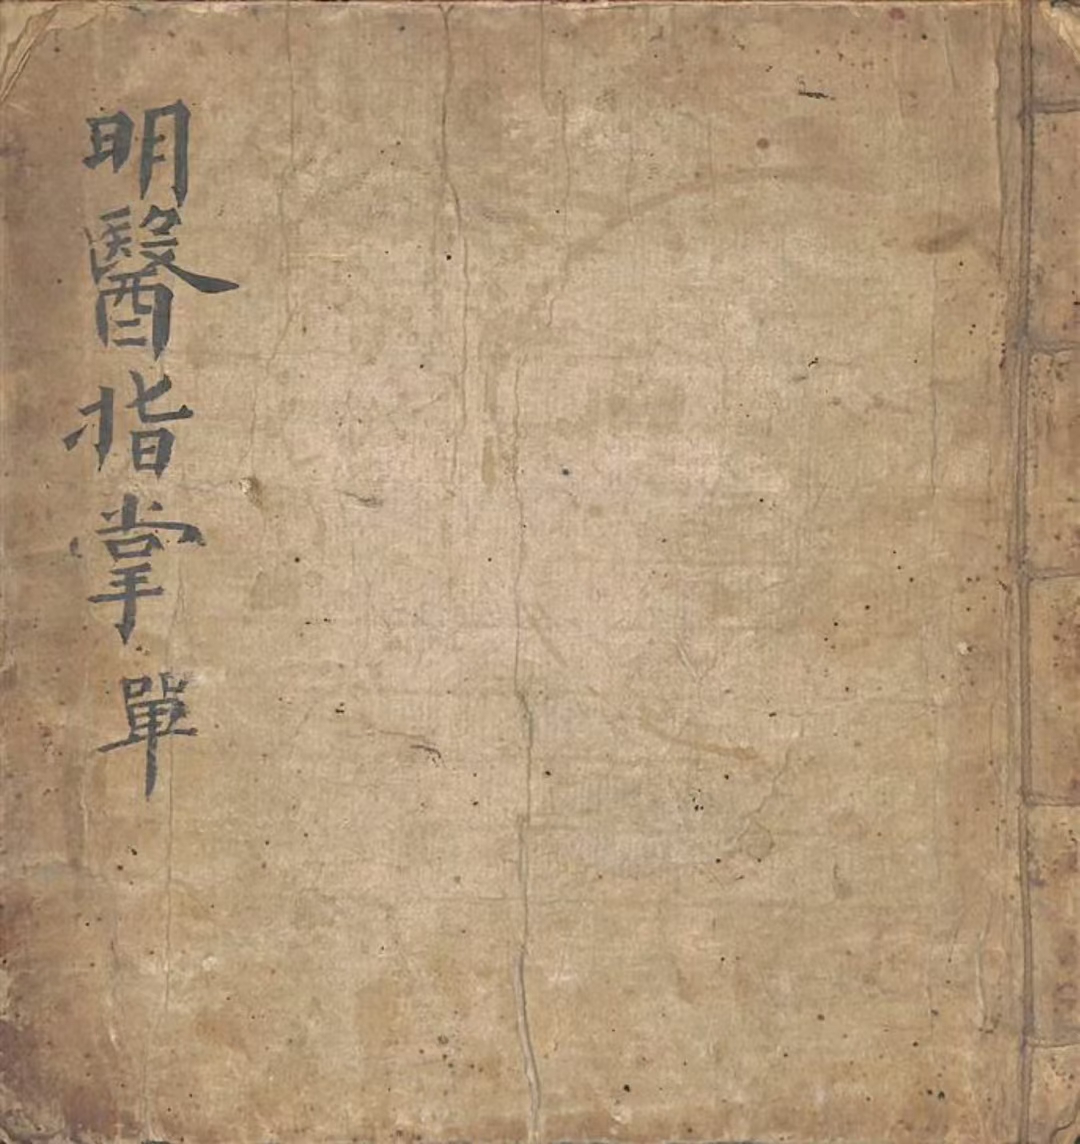 明醫指掌 單